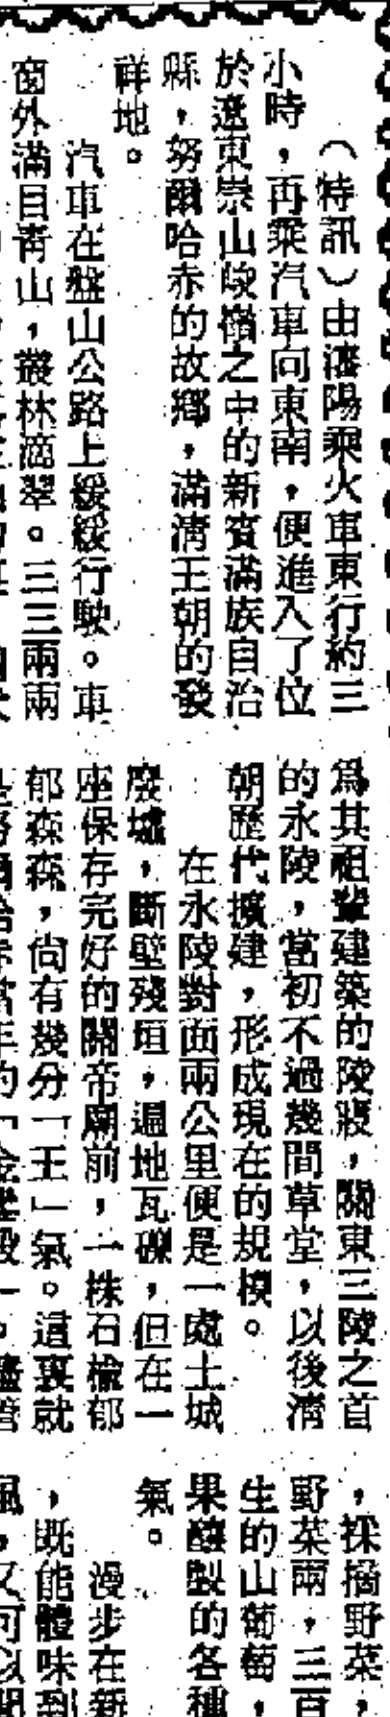 （特訊）由瀋陽乘火車東行約三
小時，再乘汽車向東南，便進入了位
於遼東崇山峻嶺之中的新賓滿族自治
縣，努爾哈赤的故鄉，滿清王朝的發
祥地。
汽車在盤山公路上緩緩行駛。車
窗外滿目青山，叢林滴翠。三三兩兩
爲其祖輩建築的陵寢，關東三陵之首
的永陵，當初不過幾間草堂，以後清
朝歷代擴建，形成現在的規模。
在永陵對面兩公里便是一處土城
廢墟，斷壁殘垣，遍地瓦礫，但在一
座保存完好的關帝廟前，一株石榆郁
郁森森，尚有幾分「王」氣。這裏就
，採摘野菜，
野菜兩，三百
生的山葡萄，
果釀製的各種
氣。
漫步在新
，既能體味到
風，又可以